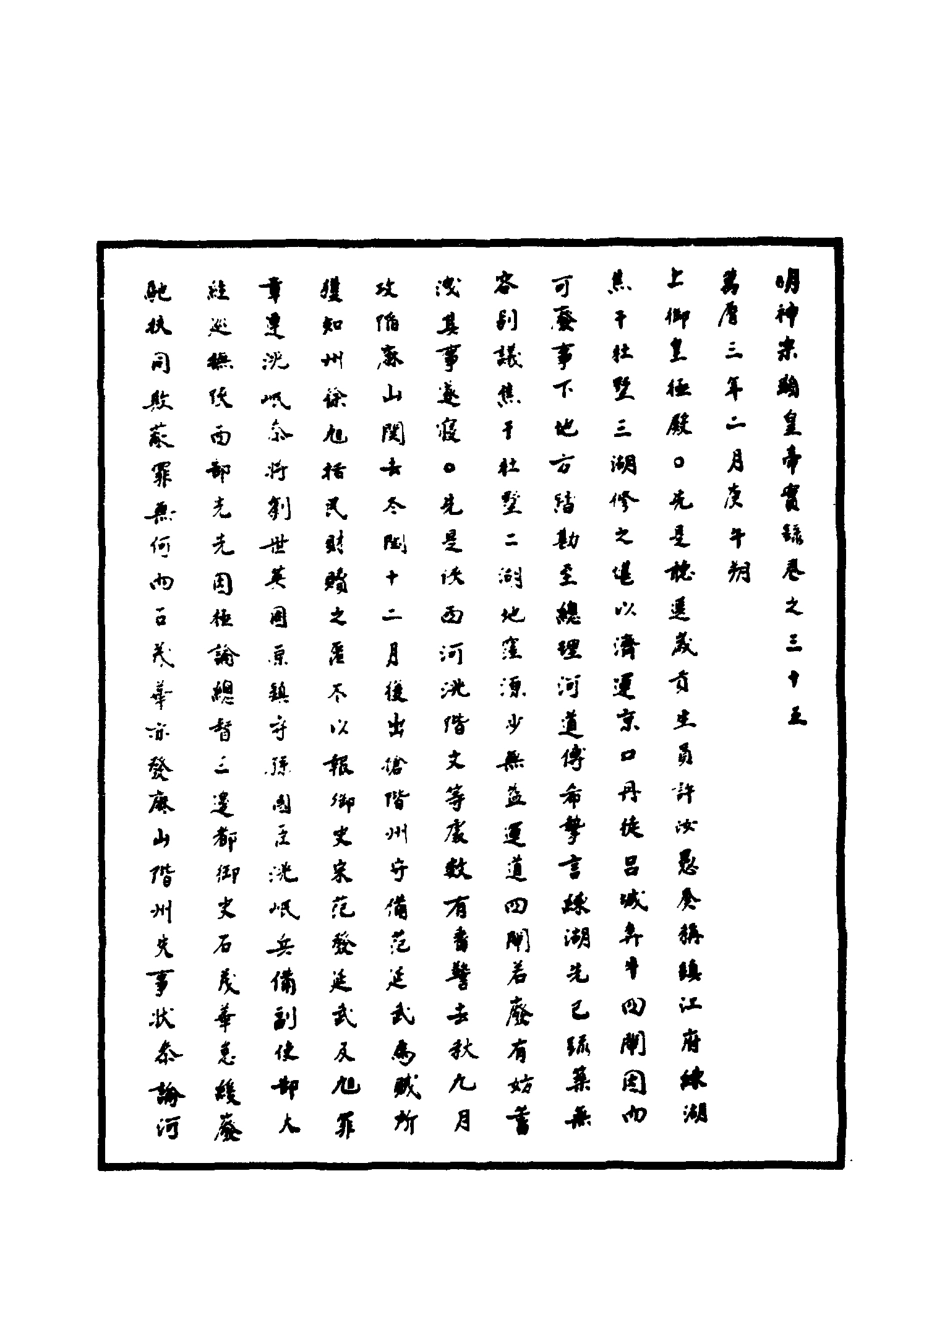 明神宗顯皇帝實錄卷之三十五
萬曆三年二月庚午朔
上御皇極殿○先是聽選歲貢生員許汝愚奏稱鎮江府練湖
焦子杜墅三湖修之堪以濟運京口丹徒呂城奔牛四閘因而
可廢事下地方踏勘至總理河道傅希摯言練湖先已疏築無
容別議焦子杜墅二湖地窪源少無益運道四閘若廢有妨蓄
洩其事遂寢○先是陝西河洮階文等處數有番警去秋九月
攻陷麻山関去冬閏十二月復出搶階州守備范廷武為賊所
獲知州徐旭括民財贖之匿不以報御史宋范發廷武及旭罪
章連洮岷叅將劉世英固原鎮守孫國臣洮岷兵備副使鄒大
經巡撫陝西郜光先因極論總督三邊都御史石茂華怠緩廢
馳扶同欺蔽罪無何而石茂華亦發麻山階州失事狀叅論河